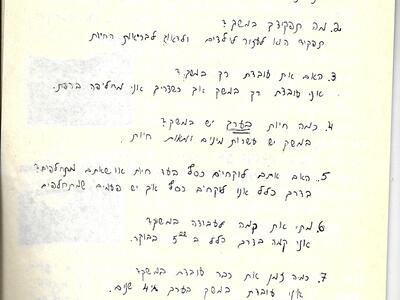 2. מה תפקידך במשק?
תפקיד הוא לעזור לילדים ולדאוג לבריאות החיות
3. האם את עובדת רק במשק?
אני עובדת רק במשק אך כשצריך אני מחליפה ברפת.
4. כמה חיות בערך יש במשק?
במשק יש עשרות מינים ומאות חיות
5. האם אתם לוקחים כסף בעד חיות או שאתם מתחלפים?
בדרך כלל אנו לוקחים כסף אך יש פעמים שמתחלפים
6. מתי את קמה לעבודה במשק?
אני קמה בדרך כלל ב 5⁰⁰ בבוקר.
7. כמה זמן את כבר עובדת במשק?
אני עובדת במשק בערך 4 שנים.